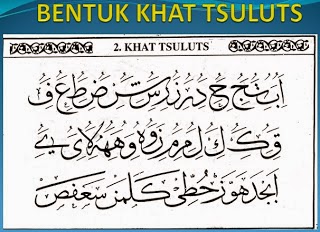 BENTUK KHAT TSULUTS
2. KHAT TSULUTS
ا ب ت ج ح د ر ز س ش ص ط ع ف
ق ك ك ل م م ر ن و ه و ه ه لا ي ي
ابجد هوز حطي كلمن سعفص